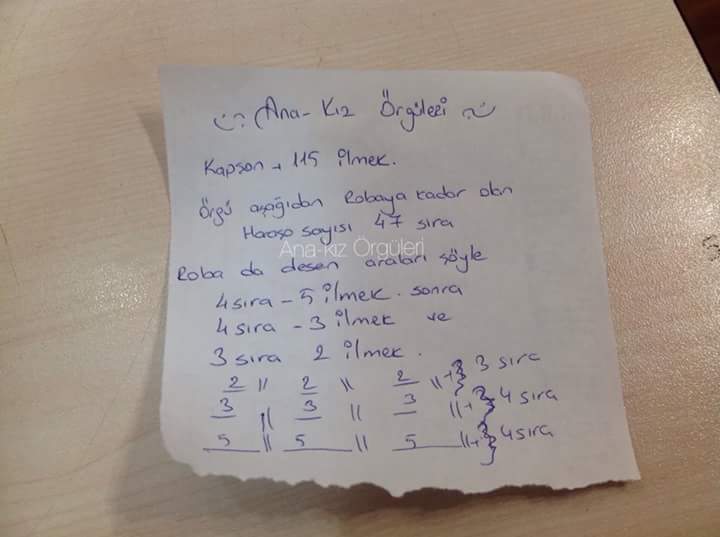 Ana-Kız Örgüleri
Kapşon → 115 ilmek.
Örgü aşağıdan Robaya kadar olan
Haraşo sayısı 47 sıra
Ana-kız Örgüleri
Roba da desen araları şöyle
4 sıra - 5 ilmek. sonra
4 sıra - 3 ilmek ve
3 sıra 2 ilmek.
2 || 2 || 2 || 3 sıra
3 || 3 || 3 || 4 sıra
5 || 5 || 5 || 4 sıra